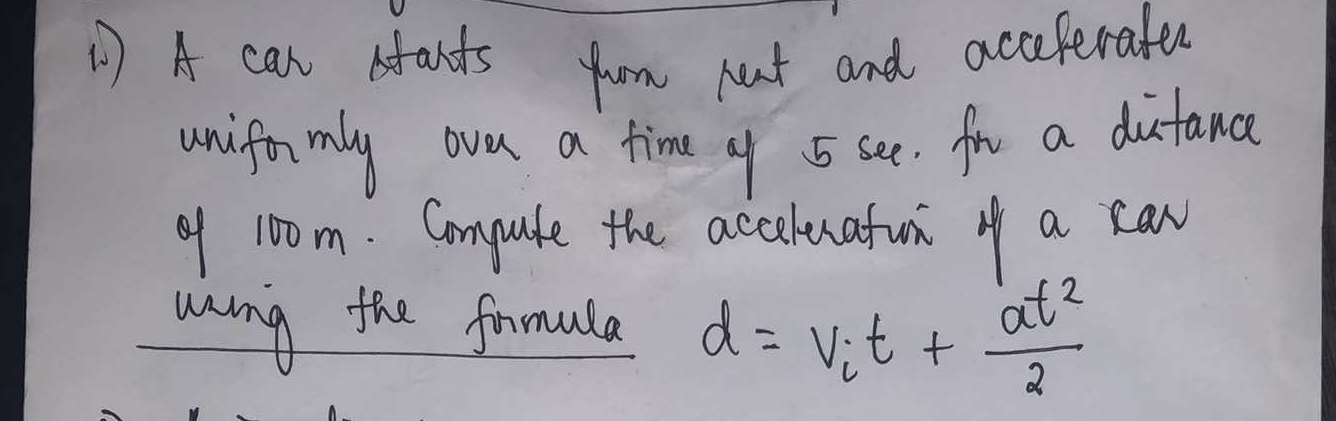 A car starts from rest and accelerates
uniformly over a time of 5 sec. for a distance
of 100 m. Compute the acceleration of a car
using the formula d = vᵢt + at²/2